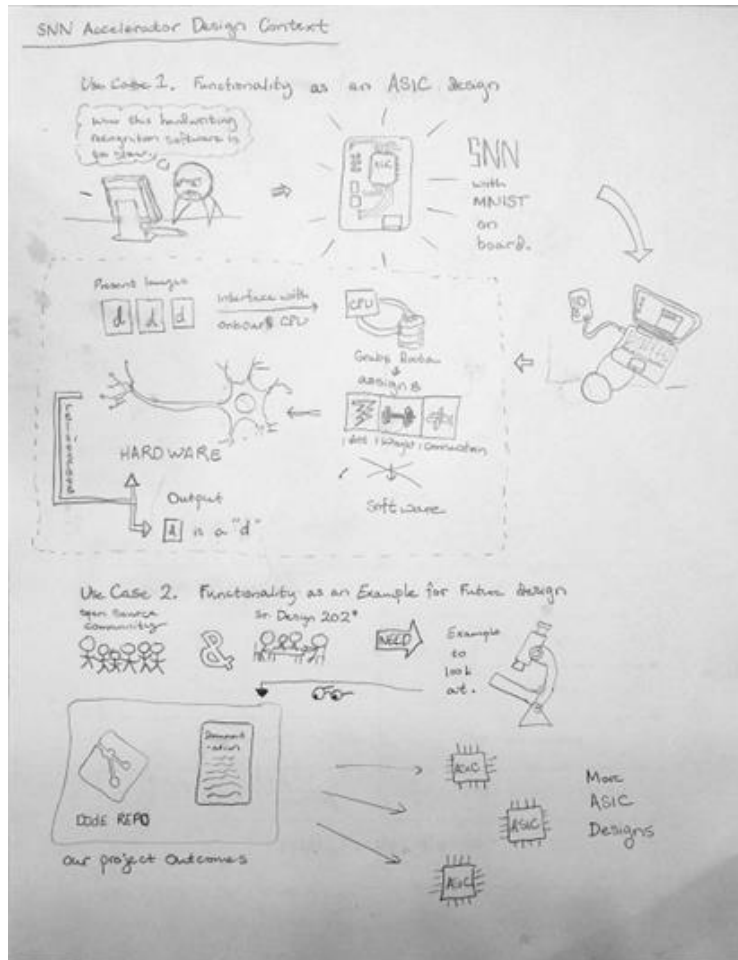 SNN Accelerator Design Context
Use Case 1. Functionality as an ASIC design
wow this handwriting
recognition software is
so slow
ASIC
SNN
with
MNIST
on
board.
Present Images
d d d
Interface with
onboard CPU
CPU
Grabs Data
&
assigns
1 Weight 1 Connection
HARDWARE
Software
Output
d is a "d"
Use Case 2. Functionality as an Example for Future design
open source
community
&
Sr. Design 202*
NEED
Example
to
look
at.
Document
-ation
CODE REPO
our project Outcomes
ASIC
ASIC
ASIC
More
ASIC
Designs